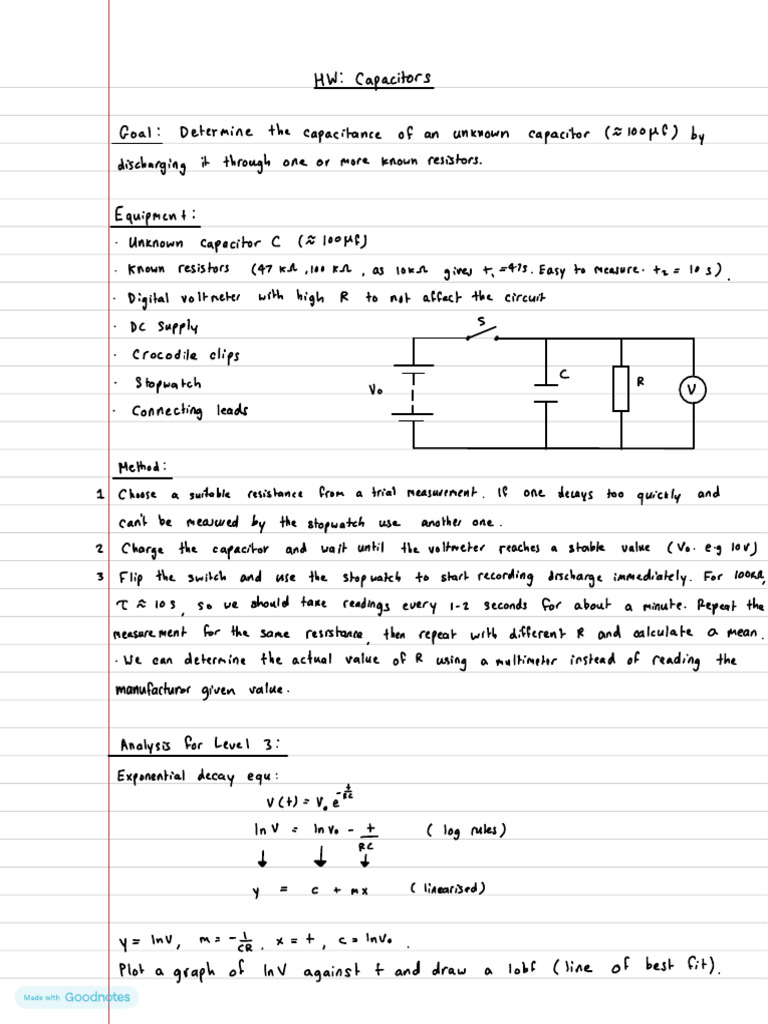 HW: Capacitors
Goal: Determine the capacitance of an unknown capacitor (≈100μF) by
discharging it through one or more known resistors.
Equipment:
· Unknown capacitor C (≈ 100μF)
· Known resistors (47 kΩ, 100 kΩ, as 10kΩ gives t₁=47s. Easy to measure. t₂ = 10 s).
· Digital voltmeter with high R to not affect the circuit
· DC Supply
· Crocodile clips
· Stopwatch
· Connecting leads
S
V₀
C
R
V
Method:
1 Choose a suitable resistance from a trial measurement. If one decays too quickly and
can't be measured by the stopwatch use another one.
2 Charge the capacitor and wait until the voltmeter reaches a stable value (V₀. e.g 10V)
3 Flip the switch and use the stopwatch to start recording discharge immediately. For 100kΩ,
τ ≈ 10 s, so we should take readings every 1-2 seconds for about a minute. Repeat the
measurement for the same resistance, then repeat with different R and calculate a mean.
· We can determine the actual value of R using a multimeter instead of reading the
manufacturer given value.
Analysis for Level 3:
Exponential decay equ:
V(t) = V₀ e^(-t/RC)
ln V = ln V₀ - t/RC (log rules)
↓ ↓ ↓
y = c + mx (linearised)
y = lnV, m = -1/CR, x = t, c = lnV₀.
Plot a graph of lnV against t and draw a lobf (line of best fit).
Made with Goodnotes